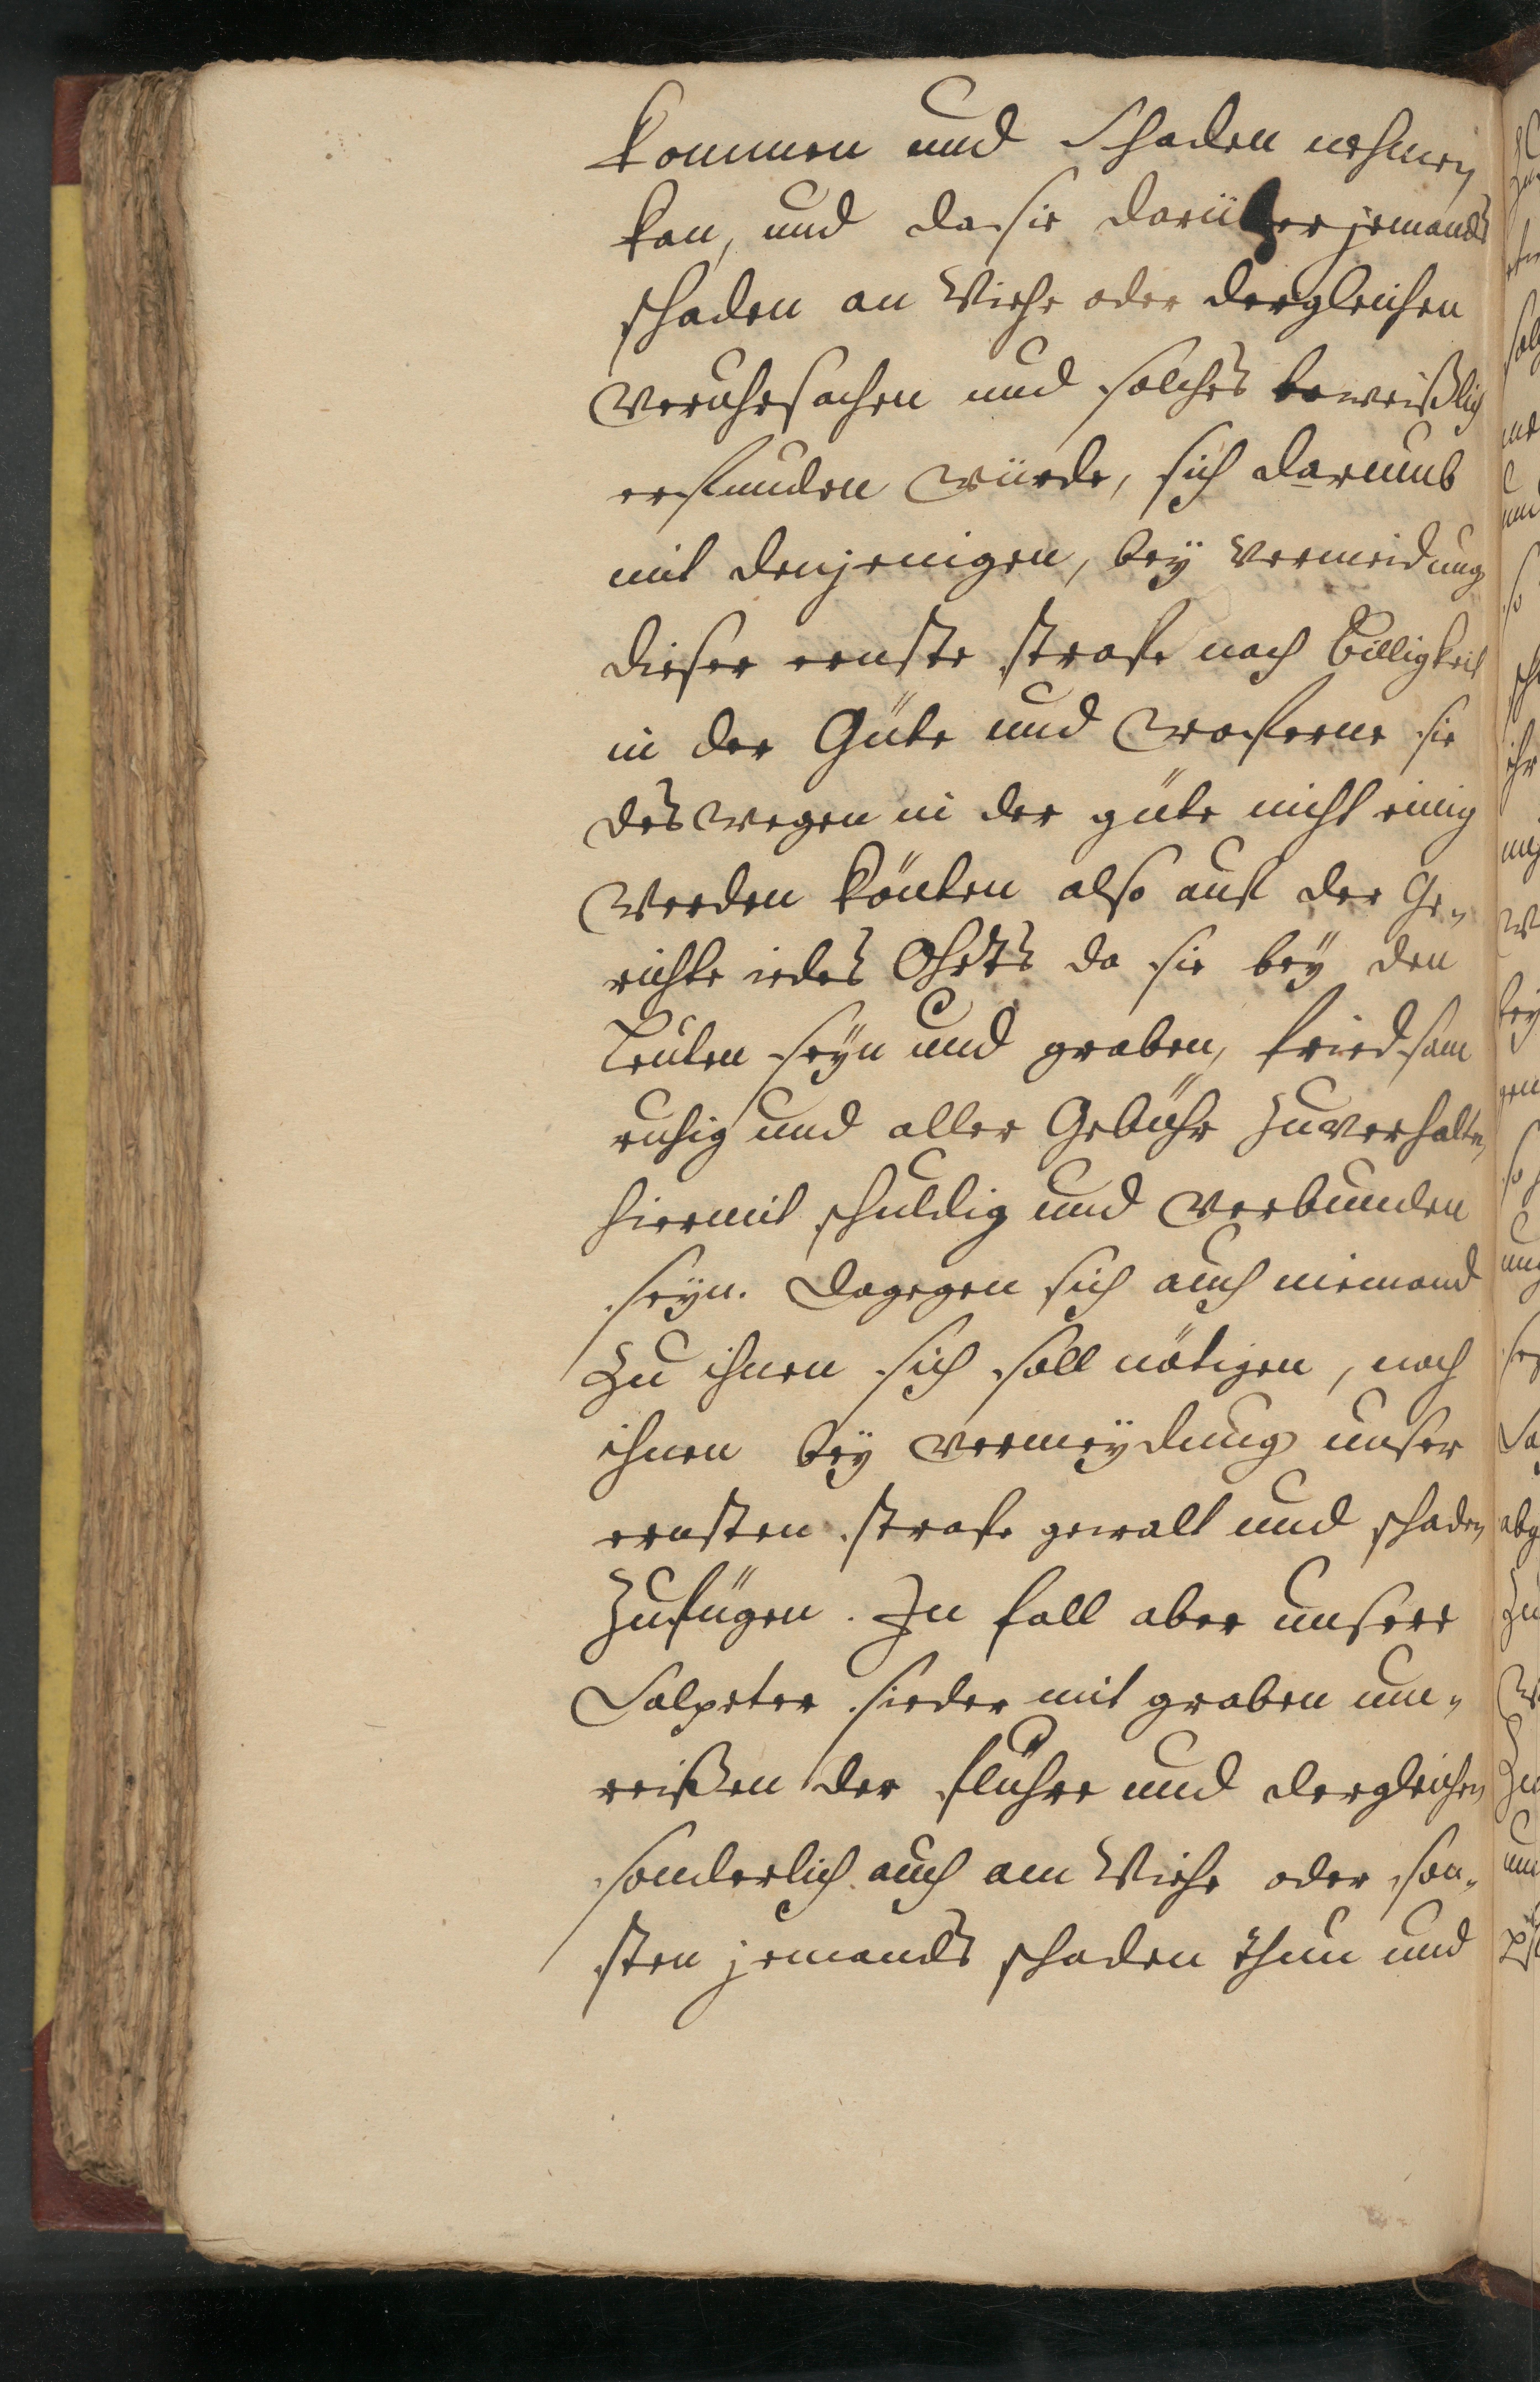 kommen und Schaden nehmen
kan, und da sie darüber jemands
schaden an Viehe oder dergleichen
veruhrsachen und solches beweißlich
erfunden würde, sich darumb
mit denjenigen, bey vermeidung
dieser ernste strafe nach Billigkeit
in der Güte und woferne sie
deswegen in der güte nicht einig
werden könten also auf der Ge-
richte iedes Ohrts da sie bey den
Leuten seyn und graben, friedsam
ruhig und aller Gebühr zuverhalten
hiermit schuldig und verbunden
seyn. Dagegen sich auch niemand
zu ihnen sich soll nötigen, noch
ihnen bey vermeydung unser
ernsten strafe gewalt und schaden
zufügen. In fall aber unsere
Salpeter sieder mit graben um-
reißen der fluhre und dergleichen
sonderlich auch am Viehe oder son-
sten jemands schaden thun und